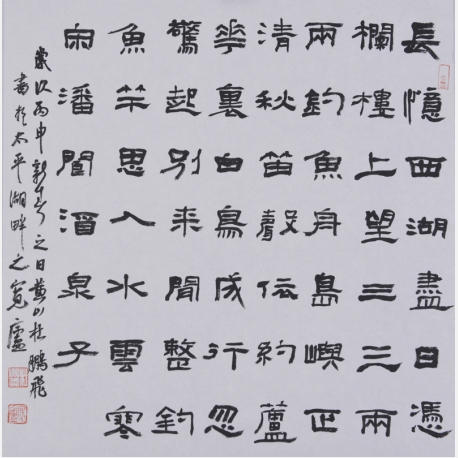 長憶西湖盡日憑
欄樓上望三三兩
兩釣魚舟島嶼正
清秋笛聲依約蘆
華裏白鳥成行忽
驚起別來閒整釣
魚竿思入水雲寒
宋潘閬酒泉子
歲次丙申新春之日黄山杜鵬飛
書於太平湖畔之寬廬